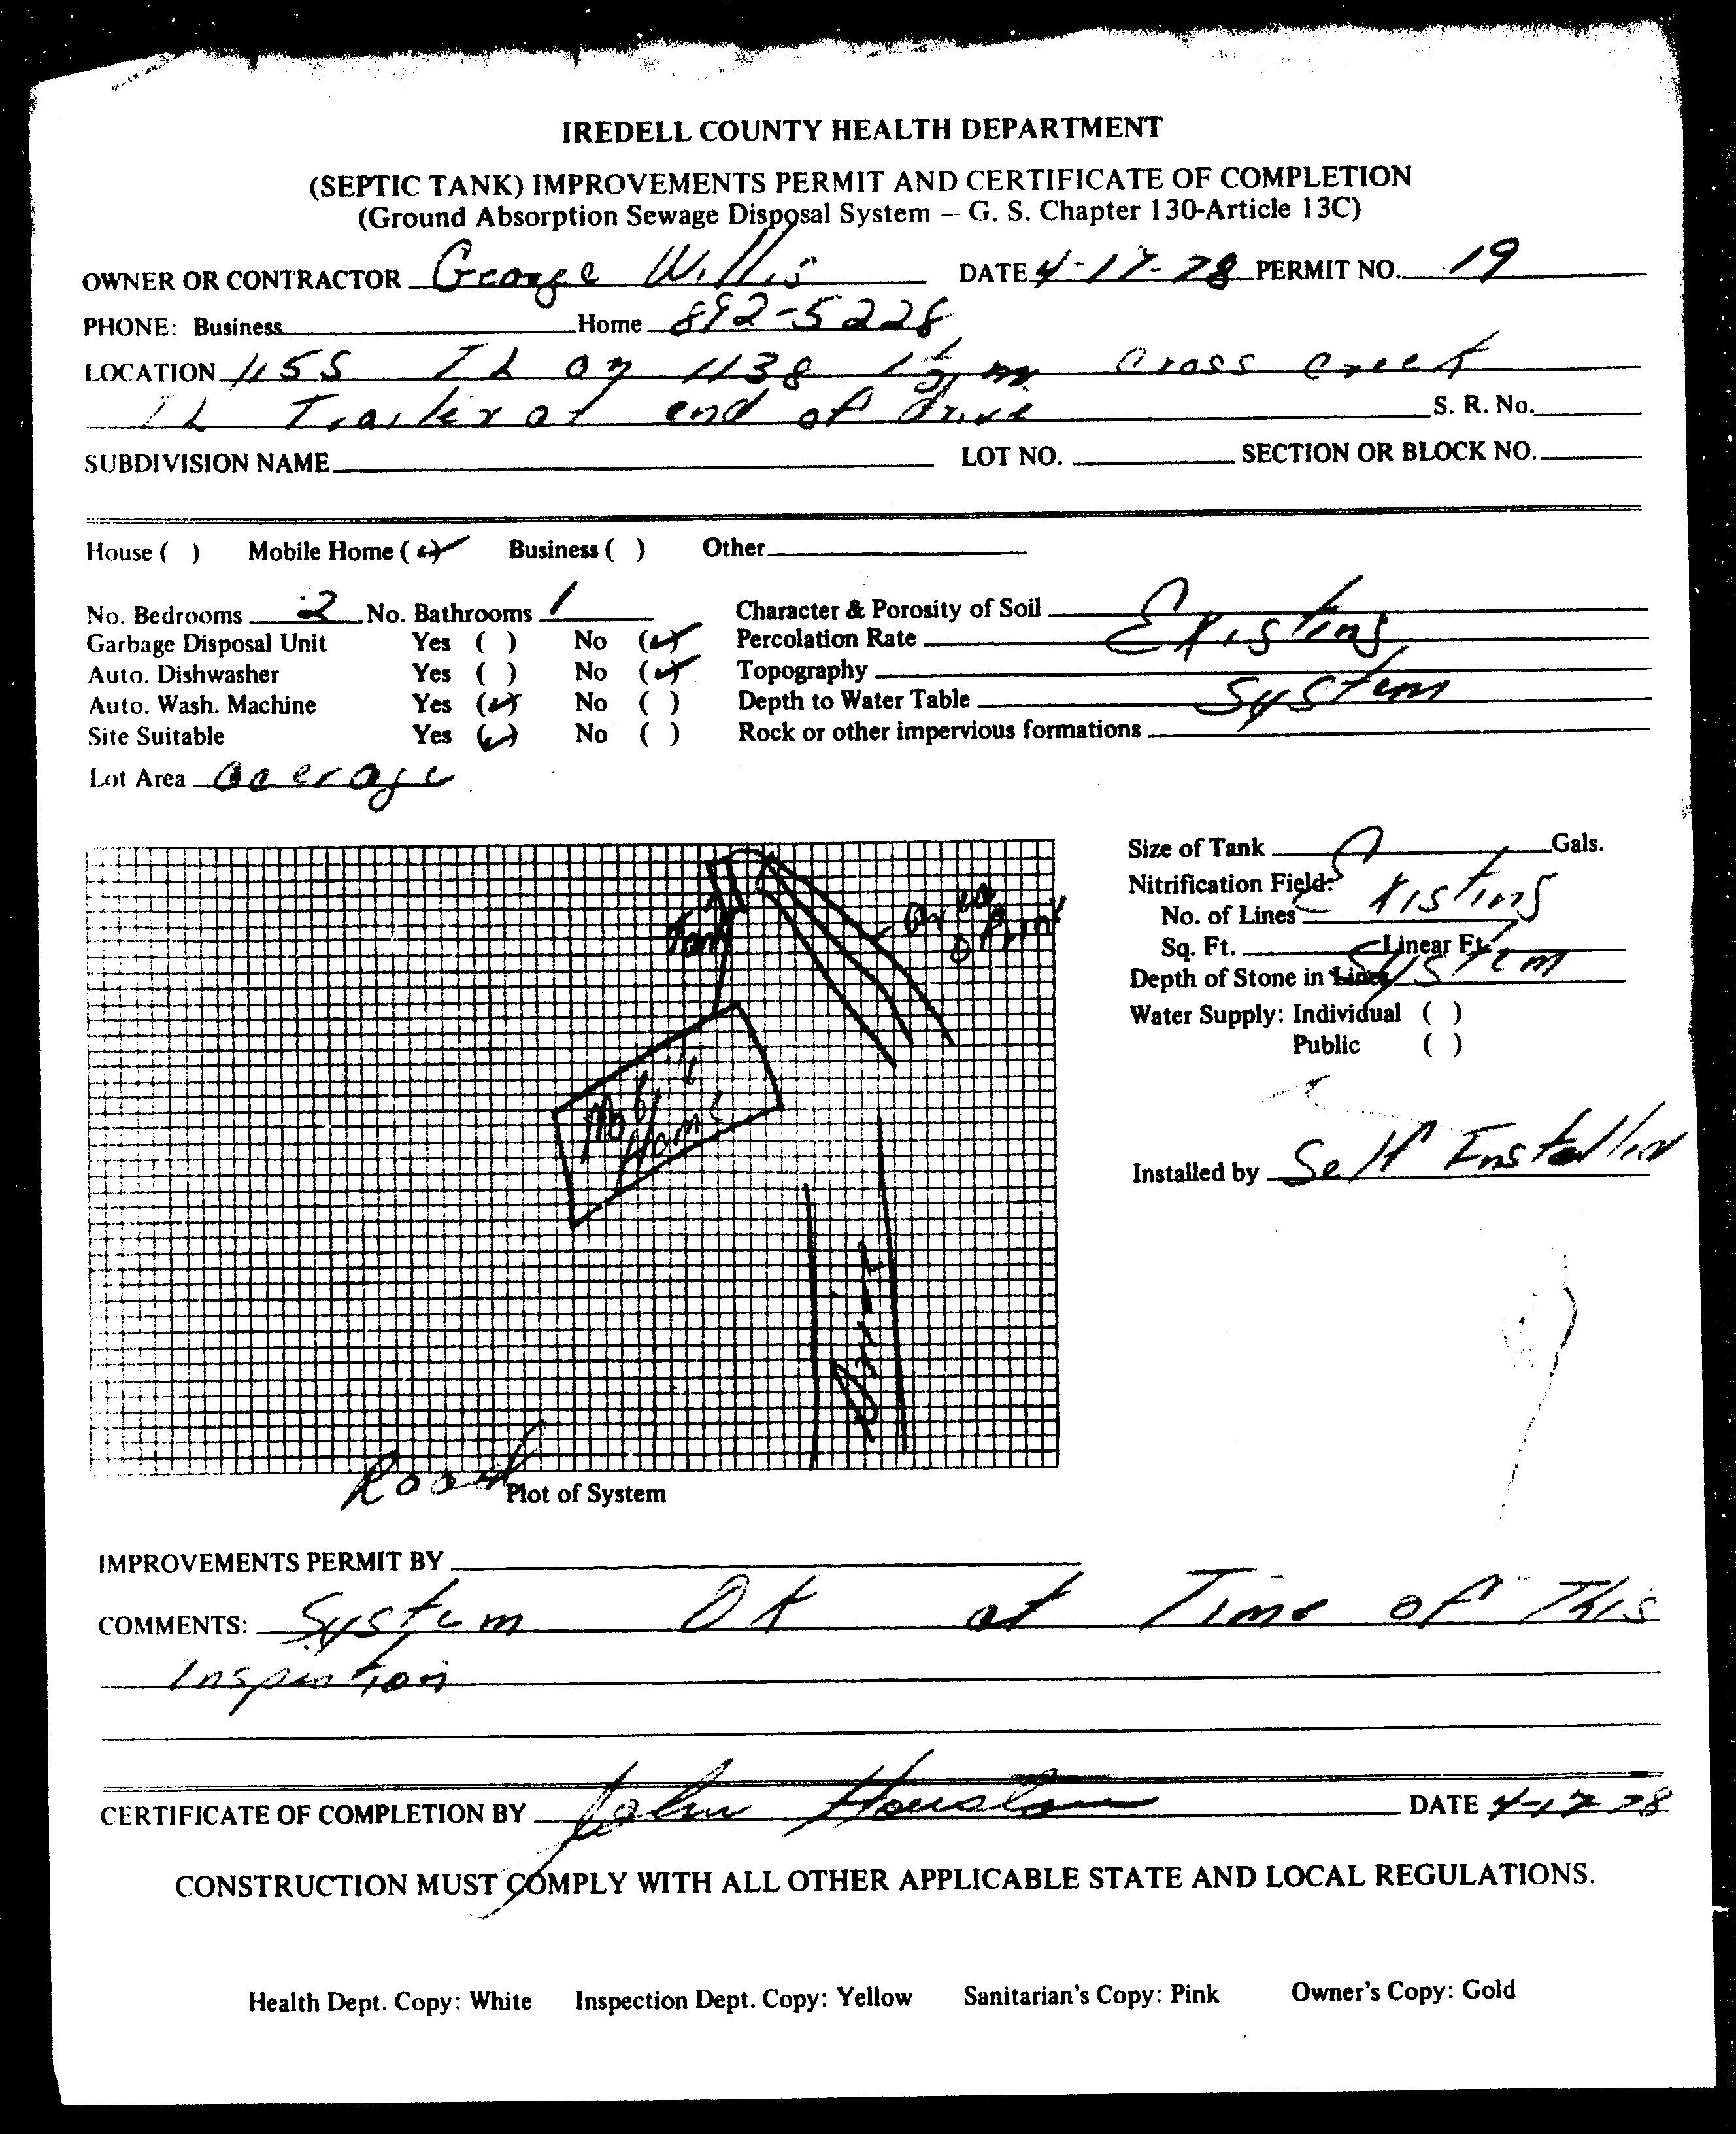 IREDELL COUNTY HEALTH DEPARTMENT
(SEPTIC TANK) IMPROVEMENTS PERMIT AND CERTIFICATE OF COMPLETION
(Ground Absorption Sewage Disposal System – G. S. Chapter 130-Article 13C)
OWNER OR CONTRACTOR George Willis DATE 4-17-78 PERMIT NO. 19
PHONE: Business Home 892-5228
LOCATION 115S TL on 1138 1 1/2 m Cross Creek
TL Trailer at end of Drive S. R. No.
SUBDIVISION NAME LOT NO. SECTION OR BLOCK NO.
House ( ) Mobile Home (✓) Business ( ) Other
No. Bedrooms 2 No. Bathrooms 1 Character & Porosity of Soil Existing
Garbage Disposal Unit Yes ( ) No (✓) Percolation Rate
Auto. Dishwasher Yes ( ) No (✓) Topography System
Auto. Wash. Machine Yes (✓) No ( ) Depth to Water Table
Site Suitable Yes (✓) No ( ) Rock or other impervious formations
Lot Area average
Size of Tank Gals.
Nitrification Field: Existing
No. of Lines
Sq. Ft. Linear Ft.
Depth of Stone in Lines System
Water Supply: Individual ( )
Public ( )
Tank
Mobile
Home
Drive
Installed by Self Installed
Road
Plot of System
IMPROVEMENTS PERMIT BY
COMMENTS: System OK at Time of This
Inspection
CERTIFICATE OF COMPLETION BY John Houston DATE 4-17-78
CONSTRUCTION MUST COMPLY WITH ALL OTHER APPLICABLE STATE AND LOCAL REGULATIONS.
Health Dept. Copy: White Inspection Dept. Copy: Yellow Sanitarian's Copy: Pink Owner's Copy: Gold